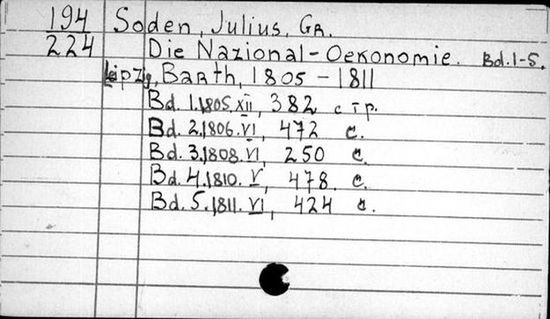 194 Soden, Julius, Gr.
224 Die Nazional-Oekonomie. Bd. 1-5.
Leipzig, Barth, 1805-1811
Bd. 1. 1805. XII, 382 стр.
Bd. 2. 1806. VI, 472 с.
Bd. 3. 1808. VI, 250 с.
Bd. 4. 1810. V, 478 с.
Bd. 5. 1811. VI, 424 с.